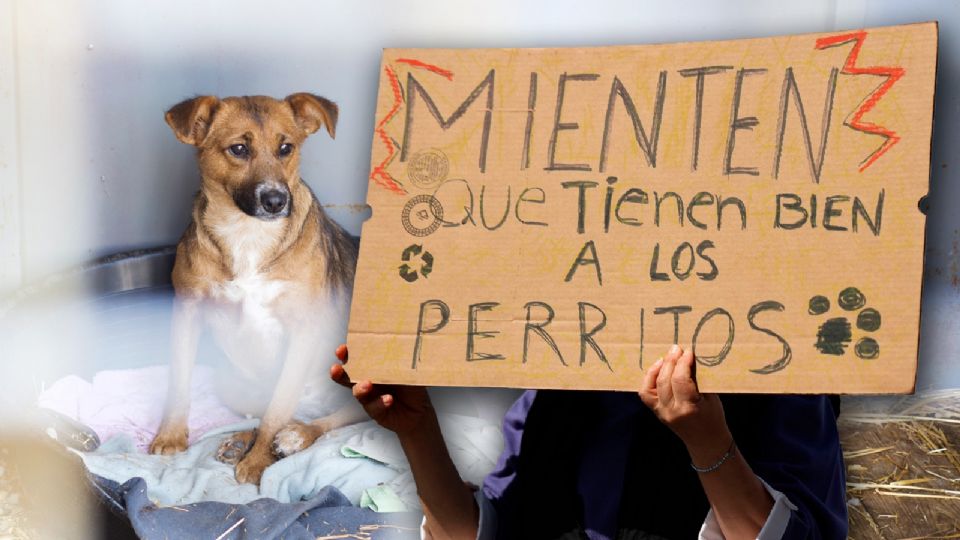 MIENTEN
QUE TIENEN BIEN
A LOS
PERRITOS